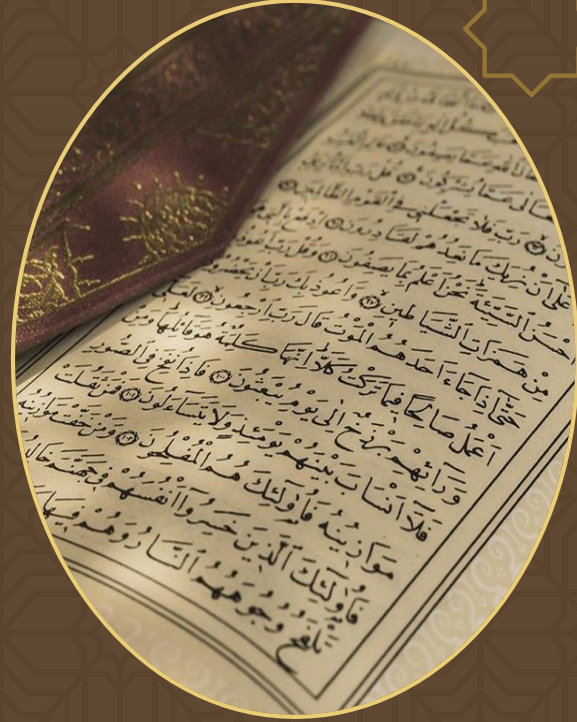 عَمَّا يُشْرِكُونَ قُلْ رَبِّ
رَبِّ فَلَا تَجْعَلْنِي فِي الْقَوْمِ الظَّالِمِينَ
عَلَىٰ أَنْ نُرِيَكَ مَا نَعِدُهُمْ لَقَادِرُونَ اِدْفَعْ بِالَّتِي
اَحْسَنُ السَّيِّئَةَ نَحْنُ اَعْلَمُ بِمَا يَصِفُونَ وَقُلْ رَبِّ اَعُوذُ
مِنْ هَمَزَاتِ الشَّيَاطِينِ وَاَعُوذُ بِكَ رَبِّ اَنْ يَحْضُرُونِ
حَتّٰى اِذَا جَاءَ اَحَدَهُمُ الْمَوْتُ قَالَ رَبِّ ارْجِعُونِ لَعَلِّي
اَعْمَلُ صَالِحًا فِيمَا تَرَكْتُ كَلَّا اِنَّهَا كَلِمَةٌ هُوَ قَائِلُهَا وَمِنْ
وَرَائِهِمْ بَرْزَخٌ اِلٰى يَوْمِ يُبْعَثُونَ فَاِذَا نُفِخَ فِي الصُّورِ
فَلَا اَنْسَابَ بَيْنَهُمْ يَوْمَئِذٍ وَلَا يَتَسَاءَلُونَ فَمَنْ ثَقُلَتْ
مَوَازِينُهُ فَاُولٰئِكَ هُمُ الْمُفْلِحُونَ وَمَنْ خَفَّتْ مَوَازِينُهُ
فَاُولٰئِكَ الَّذِينَ خَسِرُوا اَنْفُسَهُمْ فِي جَهَنَّمَ
تَلْفَحُ وُجُوهَهُمُ النَّارُ وَهُمْ فِيهَا